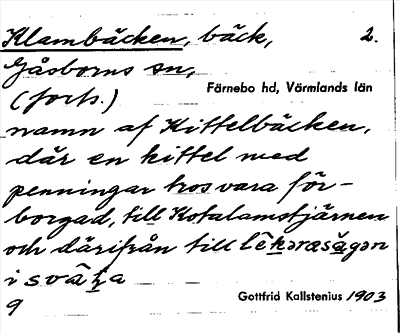 Klambäcken, bäck, 2.
Gåsborns sn,
Färnebo hd, Värmlands län
(forts.)
namn af Kittelbäcken,
där en kittel med
penningar tros vara för-
borgad, till Kotalamstjärnen
och därifrån till
i svåta
9
Gottfrid Kallstenius 1903